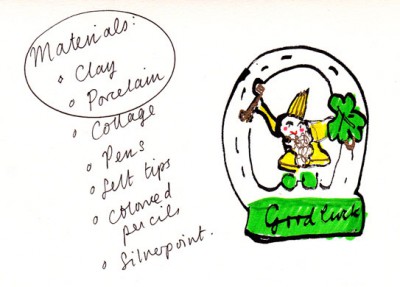 Materials:
• Clay
• Porcelain
• Collage
• Pens
• Felt tips
• Coloured
pencils
• Silverpoint.
Good luck